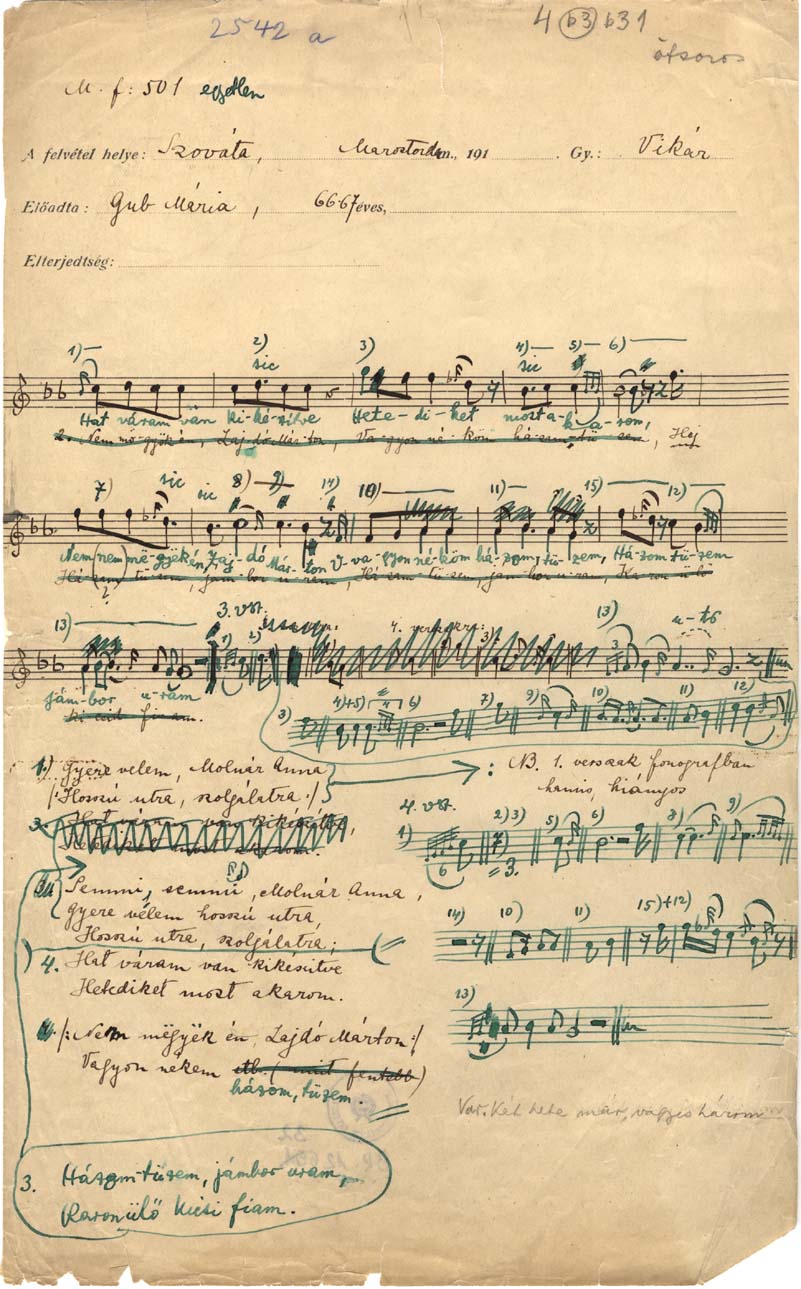 2542 a
4 b3 b31
ötsoros
M. f: 501 egyetlen
A felvétel helye: Szováta, Marostorda m., 191 . Gy.: Vikár
Előadta: Gub Mária, 66-67 éves,
Elterjedtség:
1) 2) 3) 4) 5) 6)
sic sic
Hat váram van ki-ké-sitve Hete-di-ket most a-ka-rom,
2. Nem mögyök én, Zaj-dó Már-ton, Va-gyon né-köm há-zam, tü-zem, Hej
7) sic sic 8) 9) 14) 10) 11) 15) 12)
Nem (nem) mëgyëk én, Zaj-dó Már-ton V-va-gyon né-köm há-zom, tü-zem, Há-zom tü-zem
Há-zam tü-zem, jám-bor u-ram, Há-zam tü-zem, jám-bor u-ram, Ka-ron ü-lő
13) 3. vsz. 1) 2) 3) 13) u-tó
jám-bor u-ram
ki-csi fiam.
3) 4)+5) 6) 7) 9) 10) 11) 12)
1) Gyere velem, Molnár Anna
/:Hosszú utra, szolgálatra:/
: NB. 1. versszak fonografban
hamis, hiányos
3. Hat váram van kikésitve
4. vsz.
1) 2) 3) 5) 6) 8) 9)
=3.
Semmi, semmi, Molnár Anna,
Gyere vélem hosszú utra,
Hosszú utra, szolgálatra;
4. Hat váram van kikésitve
Hetediket most akarom.
14) 10) 11) 15)+12)
13)
/:Nem mëgyëk én, Zajdó Márton:/
Vagyon nékem etb. (mint fentebb)
házom, tüzem.
Var. Két hete már, vagyis három
3. Házom-tüzem, jámbor uram,
Karonülő kicsi fiam.